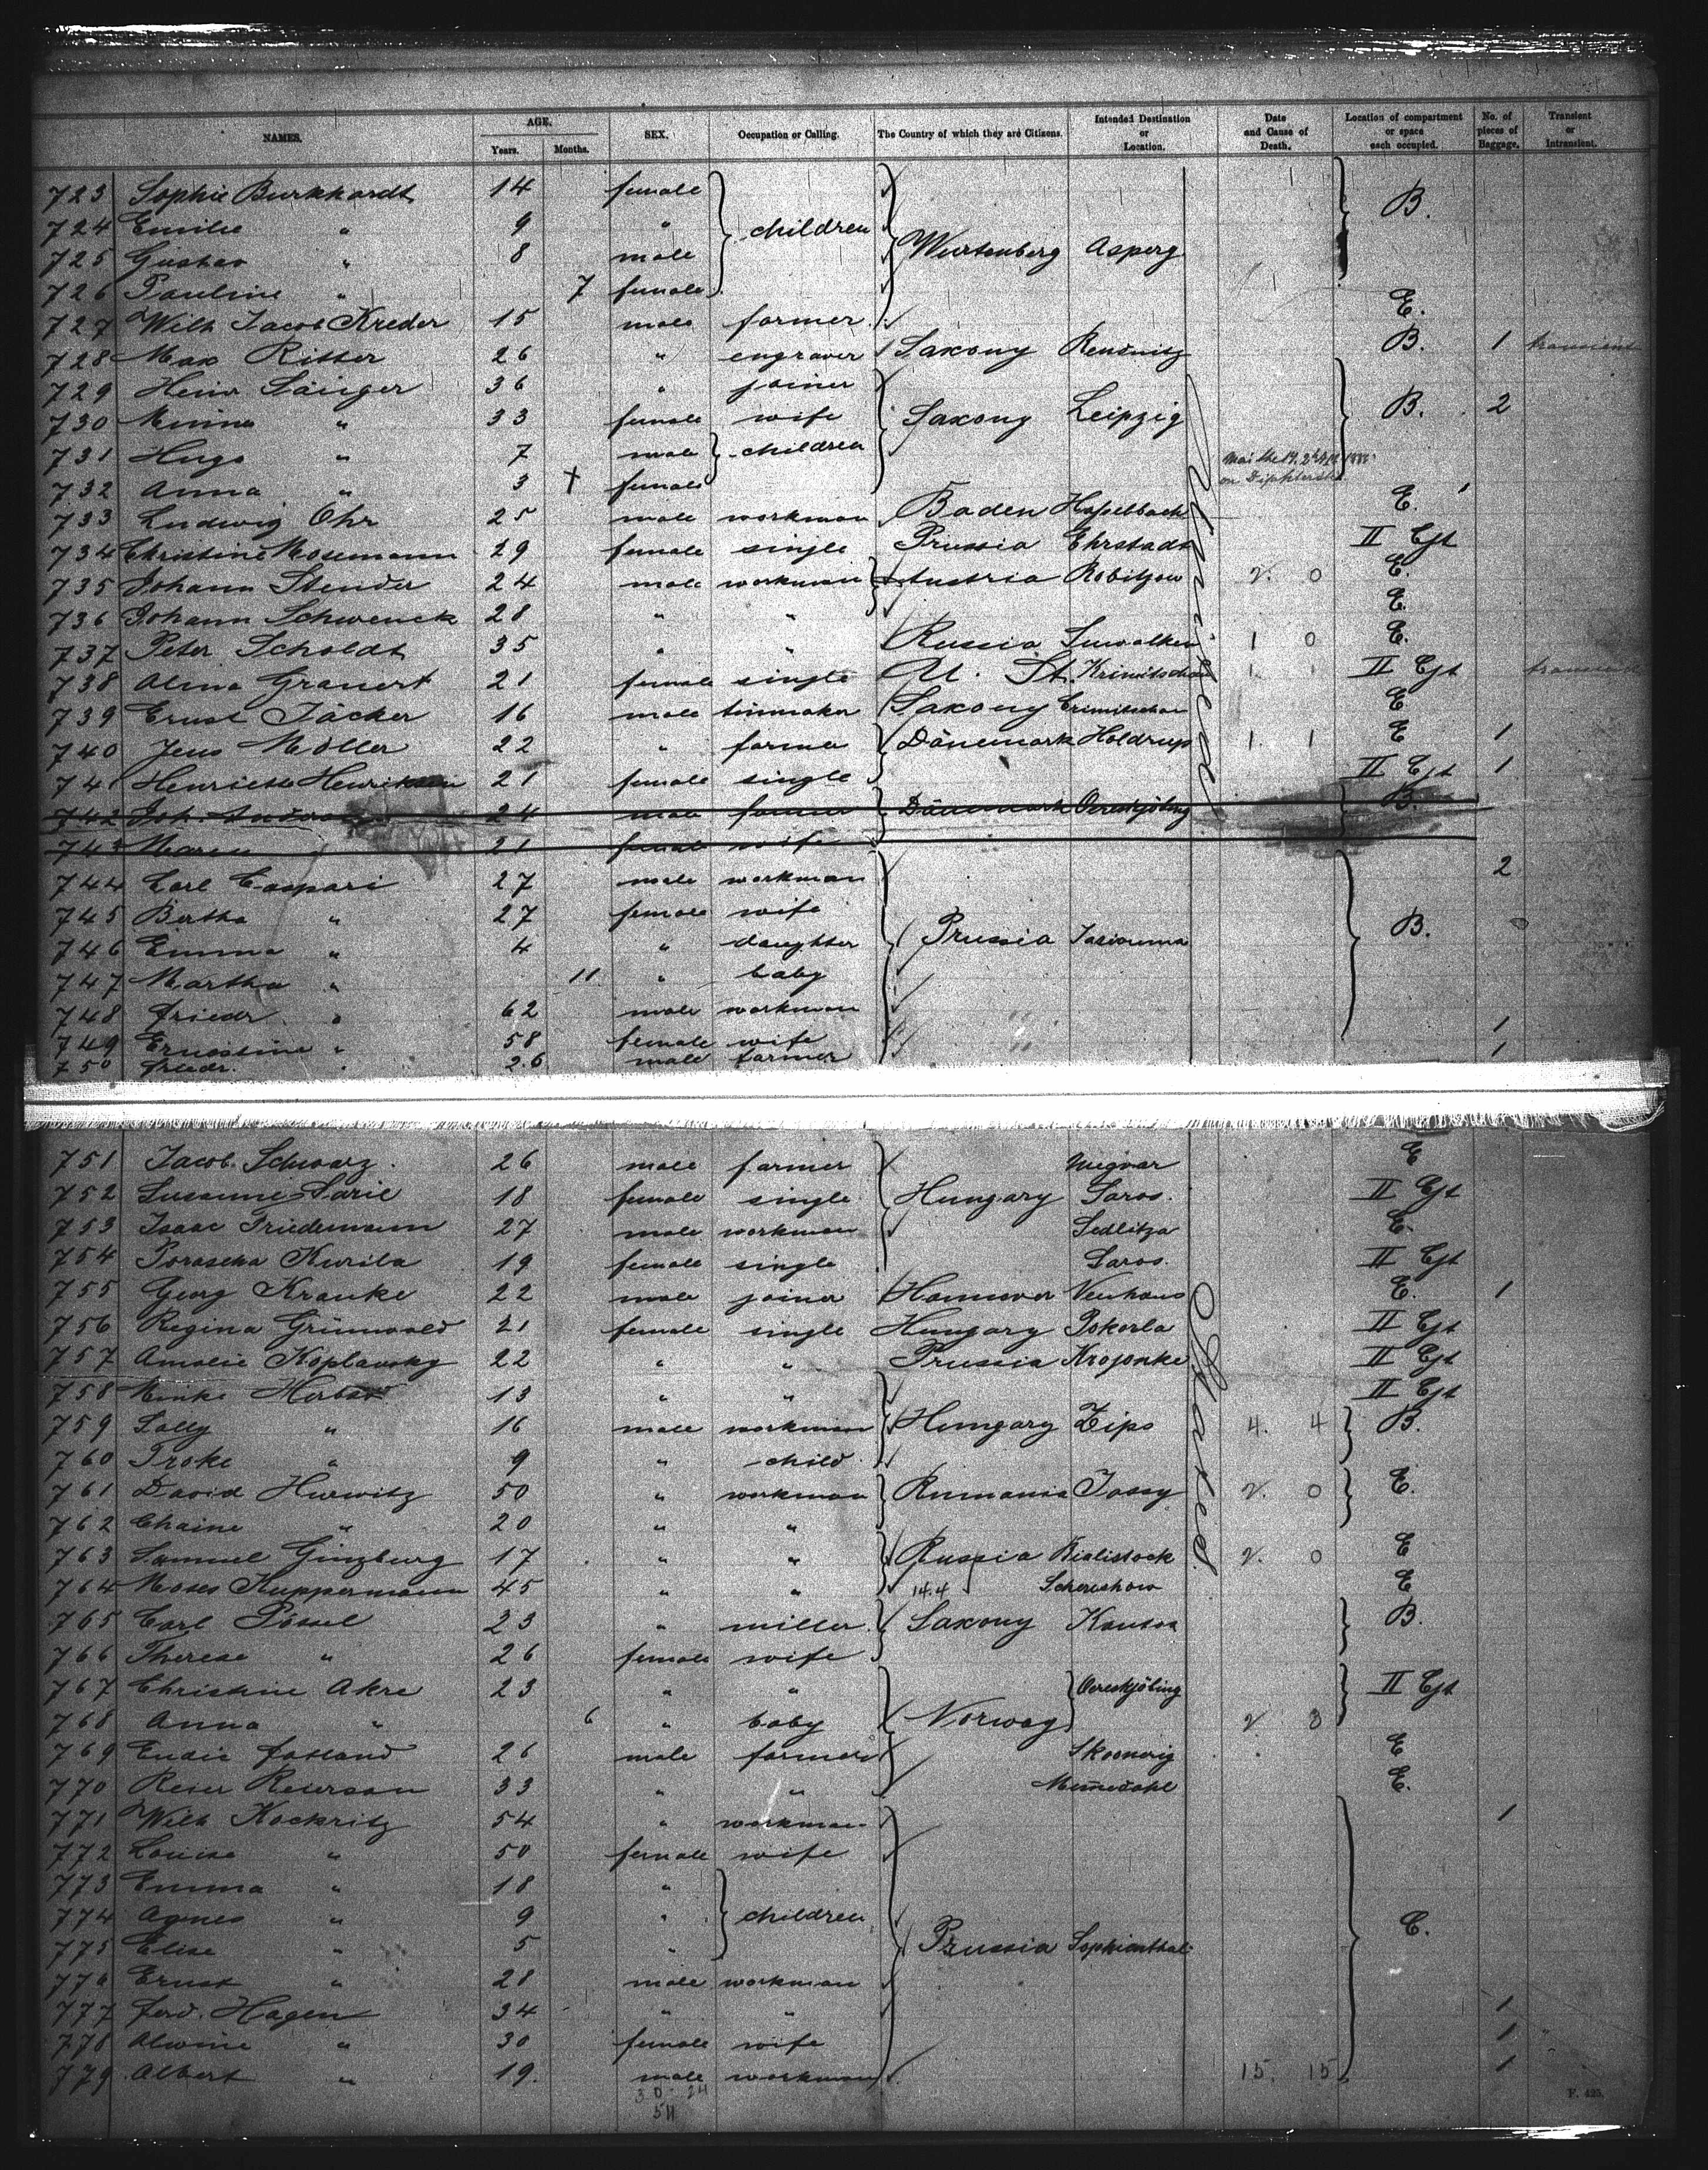 NAMES. AGE. Years. Months. SEX. Occupation or Calling. The Country of which they are Citizens. Intended Destination or Location. Date and Cause of Death. Location of compartment or space each occupied. No. of pieces of Baggage. Transient or Intransient.
723 Sophie Burkhardt 14 female
724 Emilie " 9 " children B.
725 Gustav " 8 male Wurtenberg Asperg
726 Pauline " 7 female
727 Wilh Jacob Kreder 15 male farmer E.
728 Max Ritter 26 " engraver Saxony Reudnitz B. 1 transient
729 Heinr Sänger 36 " joiner
730 Minna " 33 female wife Saxony Leipzig B. 2
731 Hugo " 7 male children
732 Anna " 3 + female on
733 Ludwig Ohr 25 male workman Baden Hasselbach E.
734 Christine Mosemann 29 female single Prussia Ehrstadt II Cjt
735 Johann Stender 24 male workman Austria Robitzow 2. 0 E.
736 Johann Schwenck 28 " " E.
737 Peter Scholdt 35 " " Russia Suwalken 1 0 E.
738 Alma Grauert 21 female single U. St. Krimitschau 1 II Cjt transient
739 Ernst Jäcker 16 male tinmaker Saxony Crimitschau E
740 Jens Möller 22 " farmer Dänemark Holdrup 1. 1 E 1
741 Henriette Henriksen 21 female single II Cjt 1
742 Joh. 24 male farmer Dänemark B.
743 Maren 21 female wife
744 Carl Caspari 27 male workman 2
745 Bertha " 27 female wife
746 Emma " 4 " daughter Prussia B.
747 Martha " 11 " baby
748 Friedr. " 62 male workman
749 Ernestine " 58 female wife 1
750 Friedr. " 26 male farmer 1
751 Jacob Schwarz 26 male farmer Ungvar E
752 Susanne Sarie 18 female single Hungary Saros. II Cjt
753 Isaac Friedemann 27 male workman Sedlitza E.
754 Porascha Kurila 19 female single Saros. II Cjt
755 Georg Kranke 22 male joiner Hannover Neuhaus E. 1
756 Regina Grünwald 21 female single Hungary Pokorla II Cjt
757 Amalie Koplawsky 22 " " Prussia Krojanke II Cjt
758 Menke Herbst 13 " " II Cjt
759 Sally " 16 male workman Hungary Zips 4. 4 B.
760 Troke " 9 " child
761 David Hurwitz 50 " workman Rumania Jassy 2. 0 E.
762 Chaine " 20 " "
763 Samuel Ginzburg 17 " " Russia Bialistock 2. 0 E
764 Moses Kuppermann 45 " " 14.4 Schereshow E
765 Carl Pössel 23 " miller Saxony B.
766 Therese " 26 female wife
767 Christine Akre 23 " " II Cjt
768 Anna " 6 " baby Norway 2 3
769 26 male farmer E
770 Reier Reierson 33 " " E.
771 Wilh Kockritz 54 " workman 1
772 Louise " 50 female wife
773 Emma " 18 "
774 Agnes " 9 " children C.
775 Elise " 5 " Prussia Sophienthal
776 Ernst " 28 male workman
777 Ferd. Hagen 34 " " 1
778 Alwine " 30 female wife 1
779 Albert " 19. male workman 15. 15 1
30 24
54
F. 425.
United
States